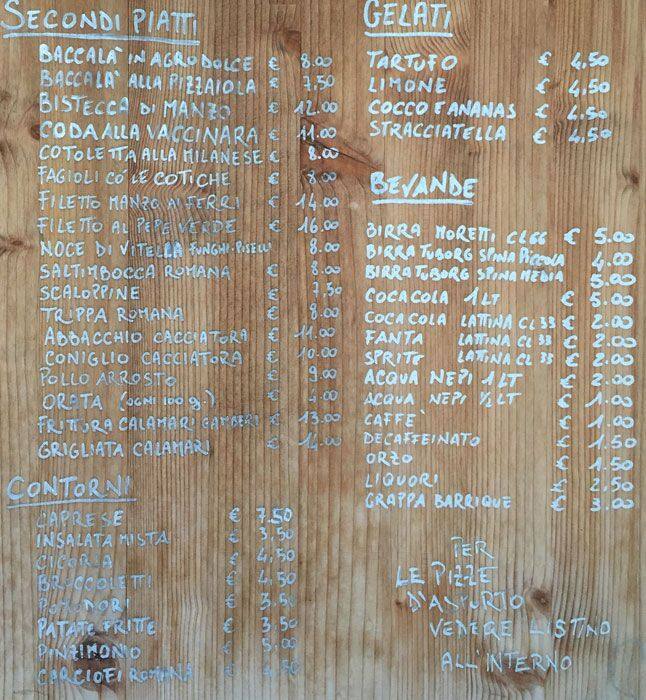 SECONDI PIATTI
BACCALA' IN AGRODOLCE € 8.00
BACCALA' ALLA PIZZAIOLA € 7,50
BISTECCA DI MANZO € 12.00
CODA ALLA VACCINARA € 11.00
COTOLETTA ALLA MILANESE € 8.00
FAGIOLI CO' LE COTICHE € 8.00
FILETTO MANZO AI FERRI € 14.00
FILETTO AL PEPE VERDE € 16.00
NOCE DI VITELLA FUNGHI-PISELLI 8.00
SALTIMBOCCA ROMANA € 8.00
SCALOPPINE € 7,50
TRIPPA ROMANA € 8.00
ABBACCHIO CACCIATORA € 11.00
CONIGLIO CACCIATORA € 10.00
POLLO ARROSTO € 9.00
ORATA (OGNI 100 g.) €
FRITTURA CALAMARI GAMBERI € 13.00
GRIGLIATA CALAMARI € 14.00
CONTORNI
CAPRESE € 7.50
INSALATA MISTA € 3,50
CICORIA € 4,50
BROCCOLETTI € 4,50
POMODORI € 3,50
PATATE FRITTE € 3,50
PINZIMONIO € 5,00
CARCIOFI ROMANA € 4,50
GELATI
TARTUFO € 4,50
LIMONE € 4,50
COCCO E ANANAS € 4,50
STRACCIATELLA € 4,50
BEVANDE
BIRRA MORETTI CL 66 € 5.00
BIRRA TUBORG SPINA PICCOLA 4.00
BIRRA TUBORG SPINA MEDIA 5.00
COCA COLA 1 LT € 5.00
COCA COLA LATTINA CL 33 € 2.00
FANTA LATTINA CL 33 € 2.00
SPRITE LATTINA CL 33 € 2.00
ACQUA NEPI 1 LT € 2.00
ACQUA NEPI ½ LT € 1.00
CAFFE' € 1.00
DECAFFEINATO € 1,50
ORZO € 1.50
LIQUORI € 2,50
GRAPPA BARRIQUE € 3.00
PER
LE PIZZE
D'ASPORTO
VEDERE LISTINO
ALL'INTERNO